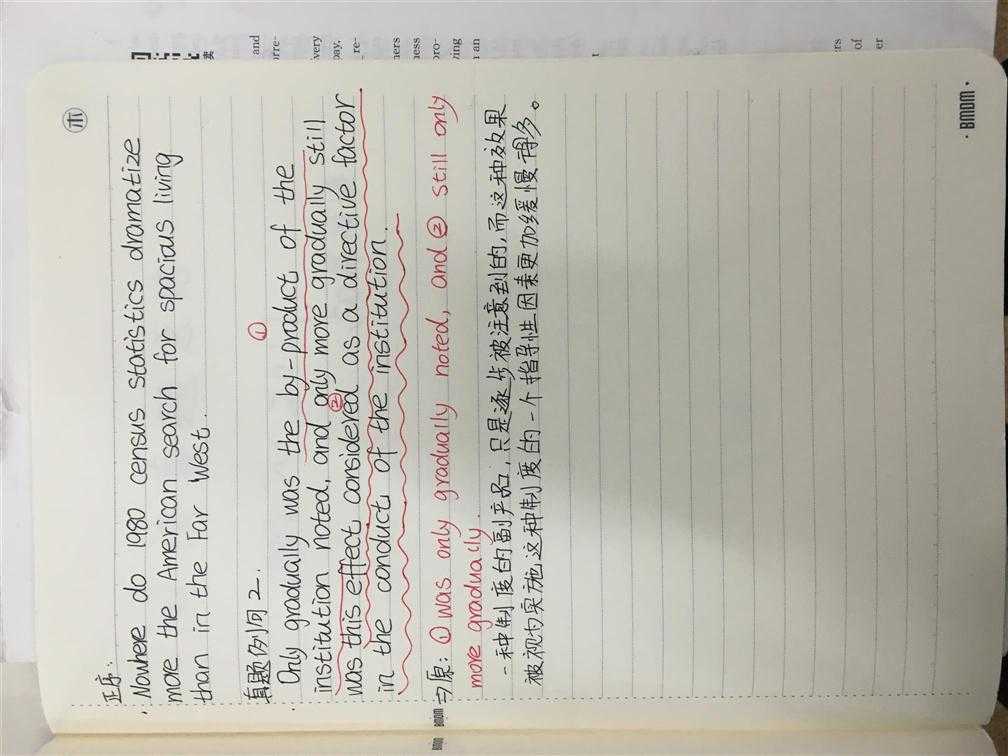 木
正序:
Nowhere do 1980 census statistics dramatize
more the American search for spacious living
than in the Far West.
真题例句2.
①
Only gradually was the by-product of the
institution noted, and only more gradually still
②
was this effect considered as a directive factor
in the conduct of the institution.
还原: ①was only gradually noted, and② still only
more gradually
一种制度的副产品,只是逐步被注意到的,而这种效果
被视为实施这种制度的一个指导性因素更加缓慢得多。
BMDM
BMDM
and
very
pay.
re-
ness
pro-
ving
an
of
er